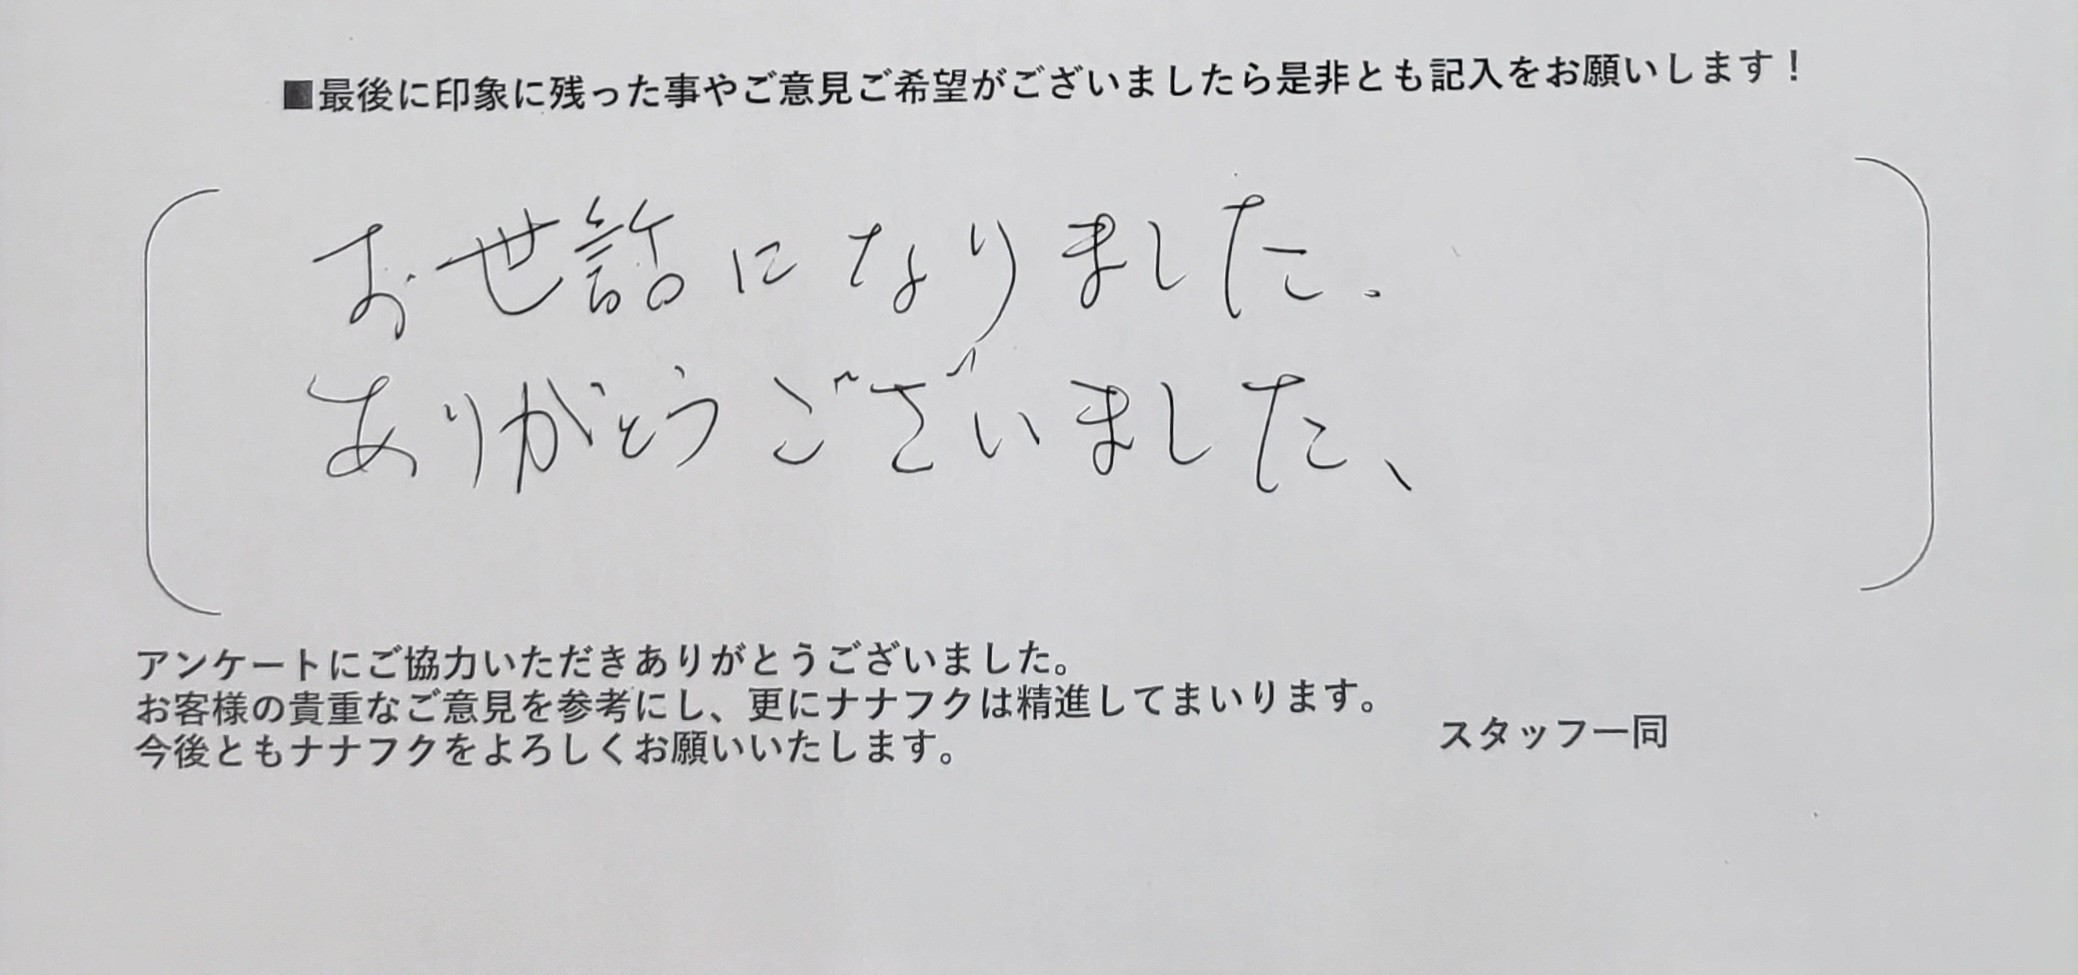 ■最後に印象に残った事やご意見ご希望がございましたら是非とも記入をお願いします！
お世話になりました.
ありがとうございました、
アンケートにご協力いただきありがとうございました。
お客様の貴重なご意見を参考にし、更にナナフクは精進してまいります。
今後ともナナフクをよろしくお願いいたします。
スタッフ一同